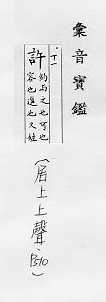 彙音寶鑑
十一
許
約与文也可也
容也進也又姓
(居上上聲,P510)